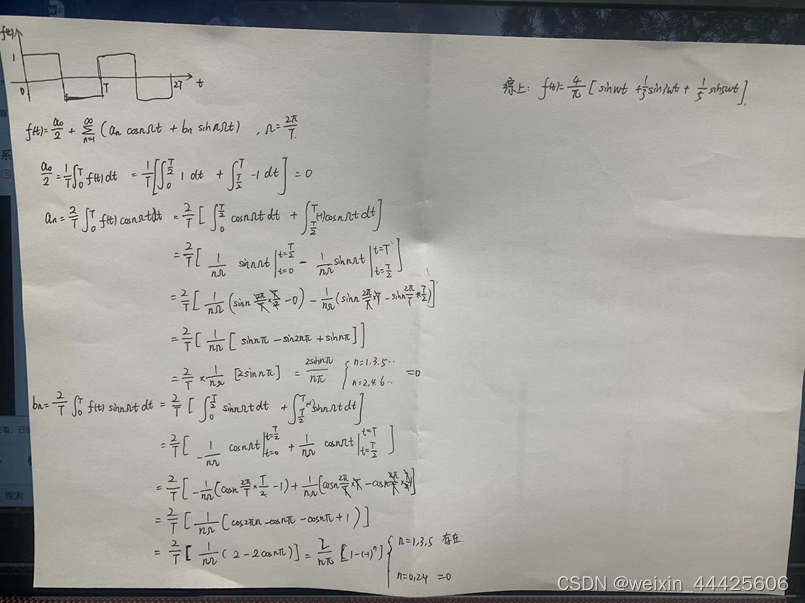 f(t)
1
0 T 2T t
综上: f(t)=4/π [sinωt + 1/3 sin3ωt + 1/5 sin5ωt].
f(t)=a₀/2 + ∑_{n=1}^{∞} (aₙ cosnΩt + bₙ sinnΩt), Ω=2π/T.
a₀/2=1/T∫₀ᵀ f(t)dt = 1/T[∫₀^{T/2} 1 dt + ∫_{T/2}^{T} -1 dt] = 0
aₙ=2/T∫₀ᵀ f(t)cosnΩtdt = 2/T[∫₀^{T/2} cosnΩt dt + ∫_{T/2}^{T}(-1)cosnΩt dt]
=2/T[1/nΩ sinnΩt|_{t=0}^{t=T/2} - 1/nΩ sinnΩt|_{t=T/2}^{t=T}]
=2/T[1/nΩ(sinn 2π/T×T/2 -0) - 1/nΩ(sinn 2π/T×T - sinn 2π/T×T/2)]
=2/T[1/nΩ[sinnπ -sin2nπ +sinnπ]]
=2/T × 1/nΩ [2sinnπ] = 2sinnπ/nπ { n=1.3.5·· n=2,4.6·· =0
bₙ=2/T ∫₀ᵀ f(t) sinnΩt dt = 2/T [∫₀^{T/2} sinnΩt dt + ∫_{T/2}^{T}(-1)sinnΩt dt]
=2/T[-1/nΩ cosnΩt|_{t=0}^{t=T/2} + 1/nΩ cosnΩt|_{t=T/2}^{t=T}]
=2/T[-1/nΩ(cosn 2π/T×T/2 -1)+1/nΩ[cosn 2π/T×T -cosn 2π/T×T/2)]
=2/T[1/nΩ(cos2πn -cosnπ -cosnπ+1)]
=2/T[1/nΩ(2-2cosnπ)] = 2/nπ [1-(-1)ⁿ] { n=1,3,5 存在
n=0,2,4 =0
搜索
CSDN @weixin_44425606